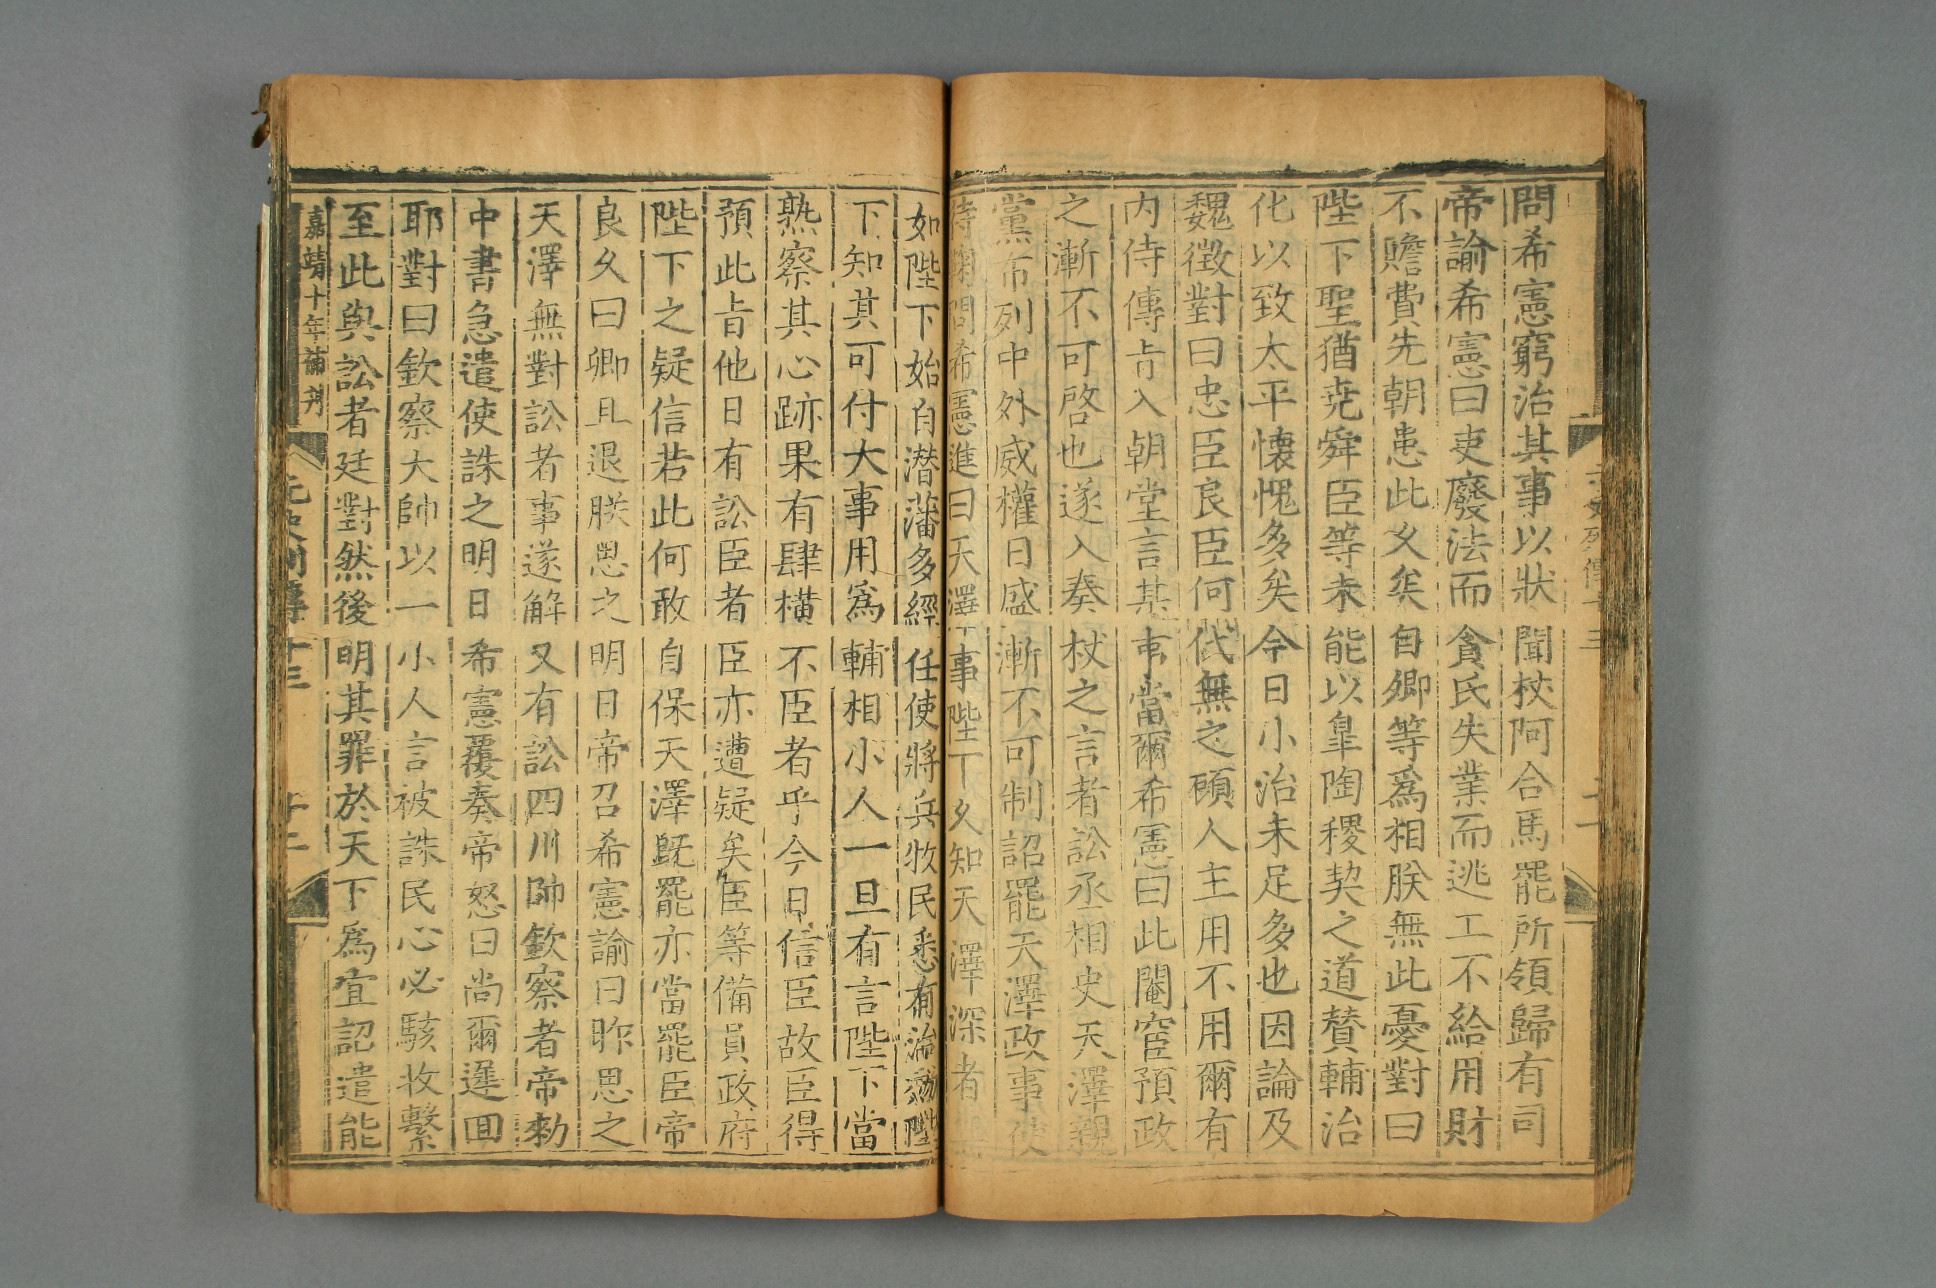 問希憲窮治其事以狀聞杖阿合馬罷所領歸有司
帝諭希憲曰吏廢法而貪民失業而逃工不給用財
不贍費先朝患此久矣自卿等爲相朕無此憂對曰
陛下聖猶堯舜臣等未能以臯陶稷契之道贊輔治
化以致太平懷愧多矣今日小治未足多也因論及
魏徵對曰忠臣良臣何代無之顧人主用不用爾有
内侍傳旨入朝堂言某事當爾希憲曰此閹宦預政
之漸不可啓也遂入奏杖之言者訟丞相史天澤親
黨布列中外威權日盛漸不可制詔罷天澤政事使
待鞫問希憲進曰天澤事陛下久知天澤深者
如陛下始自潜藩多經任使將兵牧民悉有治效陛
下知其可付大事用爲輔相小人一旦有言陛下當
熟察其心跡果有肆橫不臣者乎今日信臣故臣得
預此旨他日有訟臣者臣亦遭疑矣臣等備員政府
陛下之疑信若此何敢自保天澤既罷亦當罷臣帝
良久曰卿且退朕思之明日帝召希憲諭曰昨思之
天澤無對訟者事遂解又有訟四川帥欽察者帝勑
中書急遣使誅之明日希憲覆奏帝怒曰尚爾遲回
耶對曰欽察大帥以一小人言被誅民心必駭收繫
至此與訟者廷對然後明其罪於天下爲宜詔遣能
嘉靖十年補刋
元史列傳十三
十二